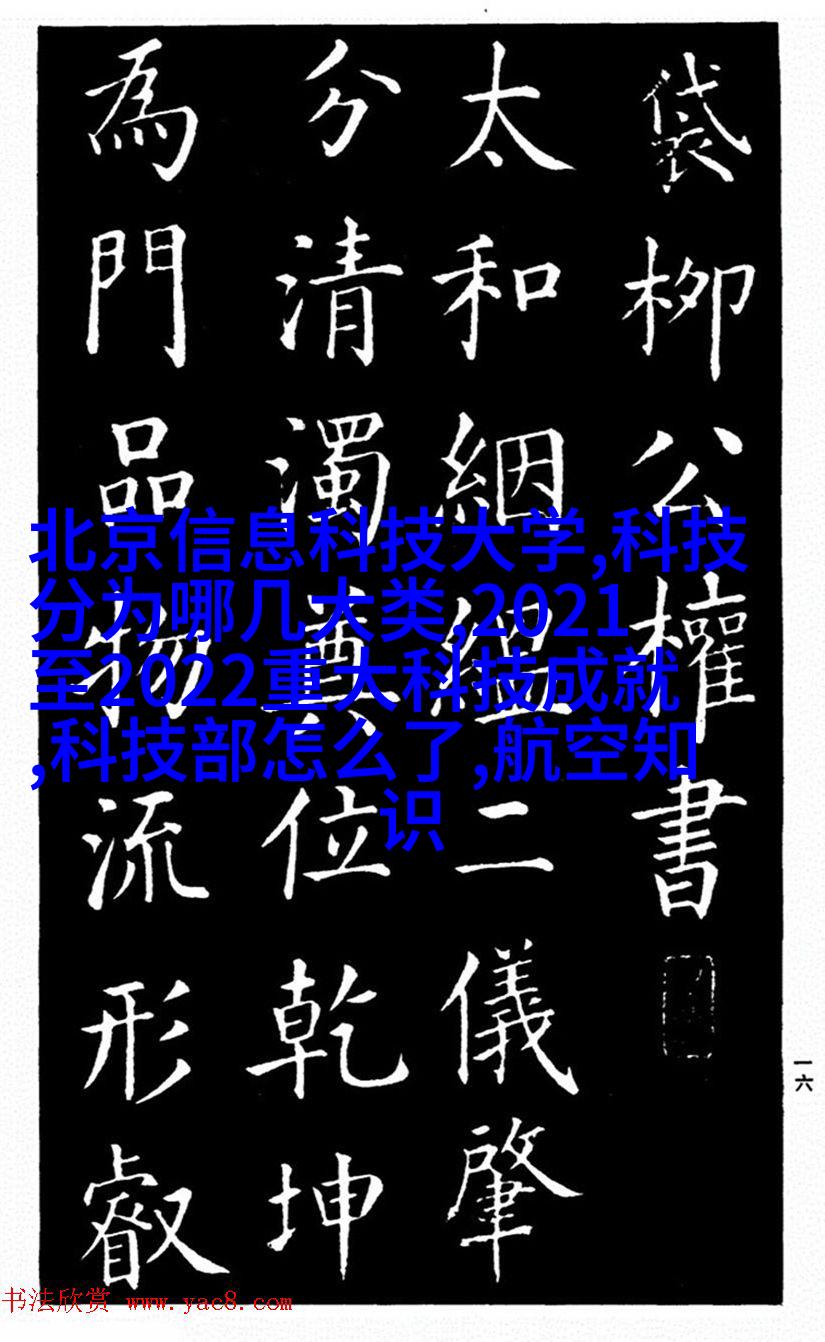 袋柳公權書
太和絪緼二儀肇
分清濁奠位乾坤
為門品物流形叡
北京信息科技大学,科技
分为哪几大类,2021
至2022重大科技成就
,科技部怎么了,航空知
识
一六
书法欣赏 www.yac8.com